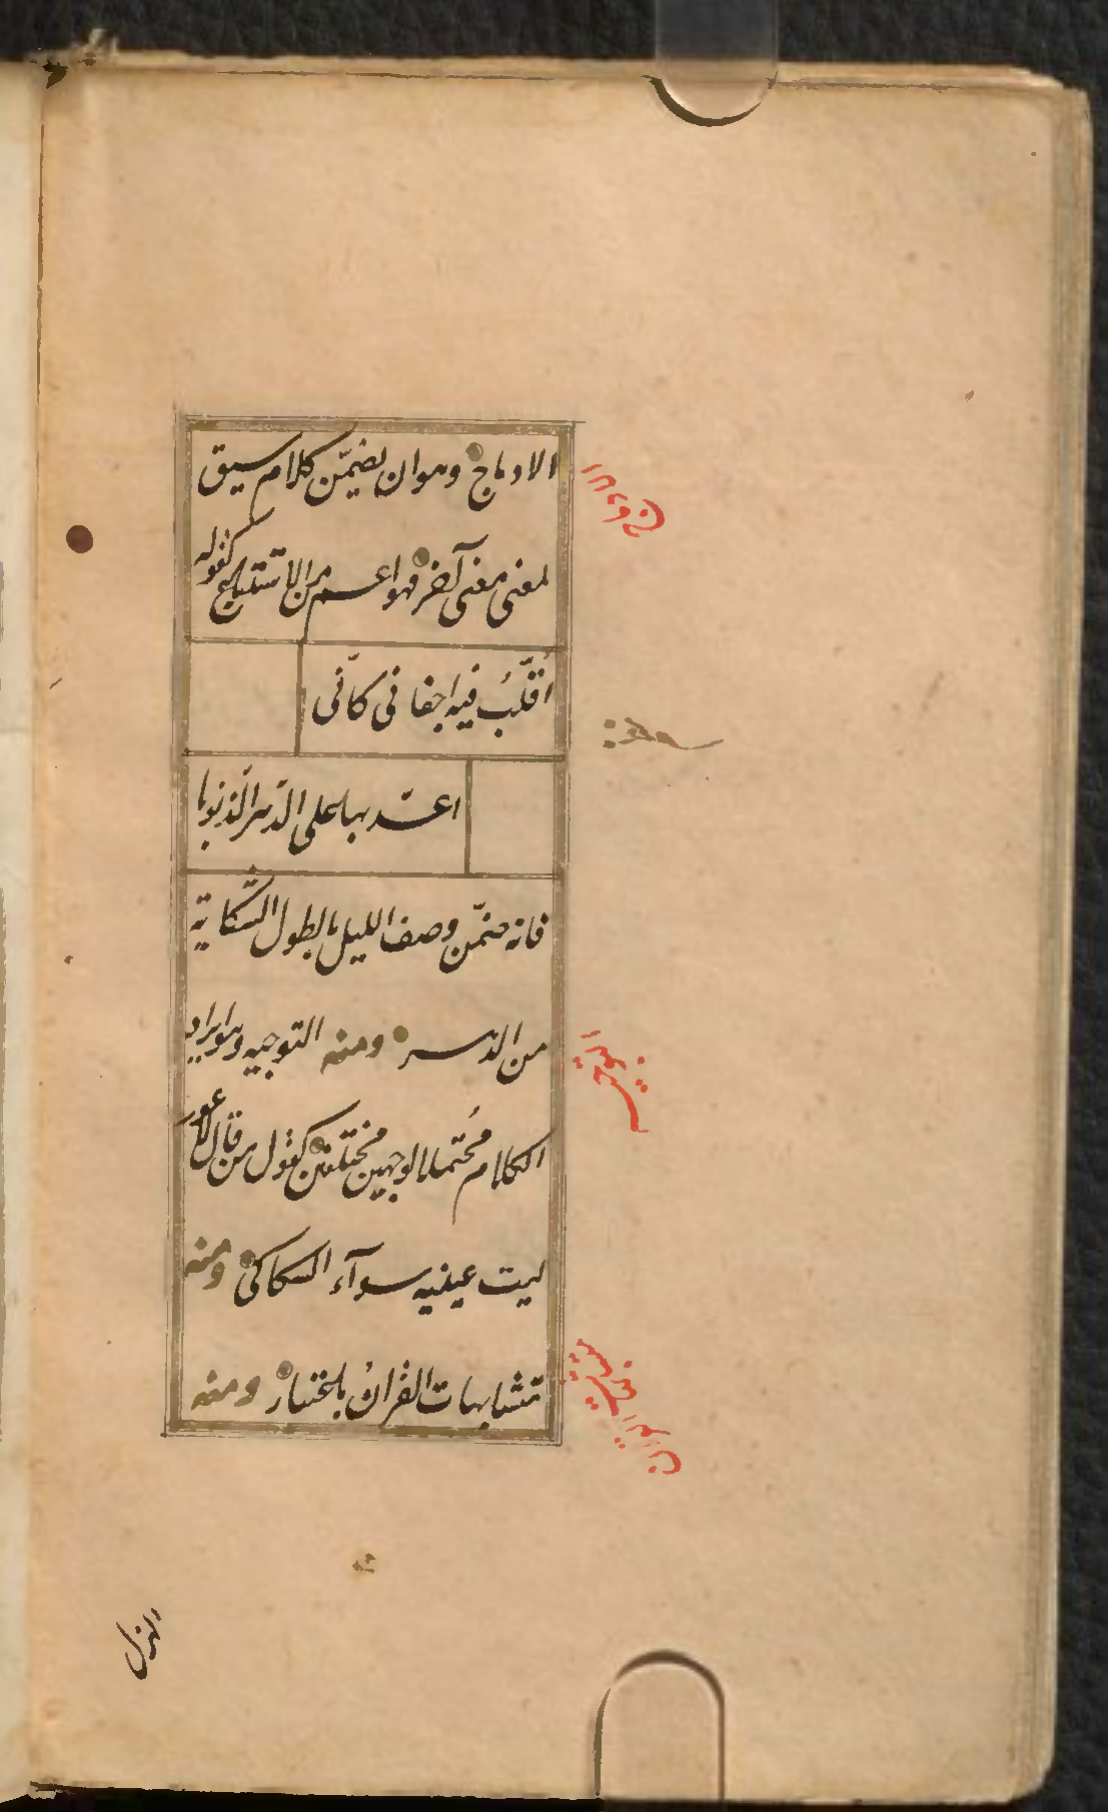 الادماج وهو ان يضمّن كلام سيق
لمعنى معنى آخر فهو اعم من الاستتباع كقوله
اُقلّبُ فيه اجفانى كانّى
اعدّ بها على الدهر الذنوبا
فانه ضمّن وصف الليل بالطول الشّكاية
من الدهر ومنه التوجيه وهو ايراد
الكلام مُحتملا لوجهين مختلفين كقول من قال لاعور
ليت عينيه سوآء السكاكى ومنه
متشابهات القرآن باعتبار ومنه
الهزل